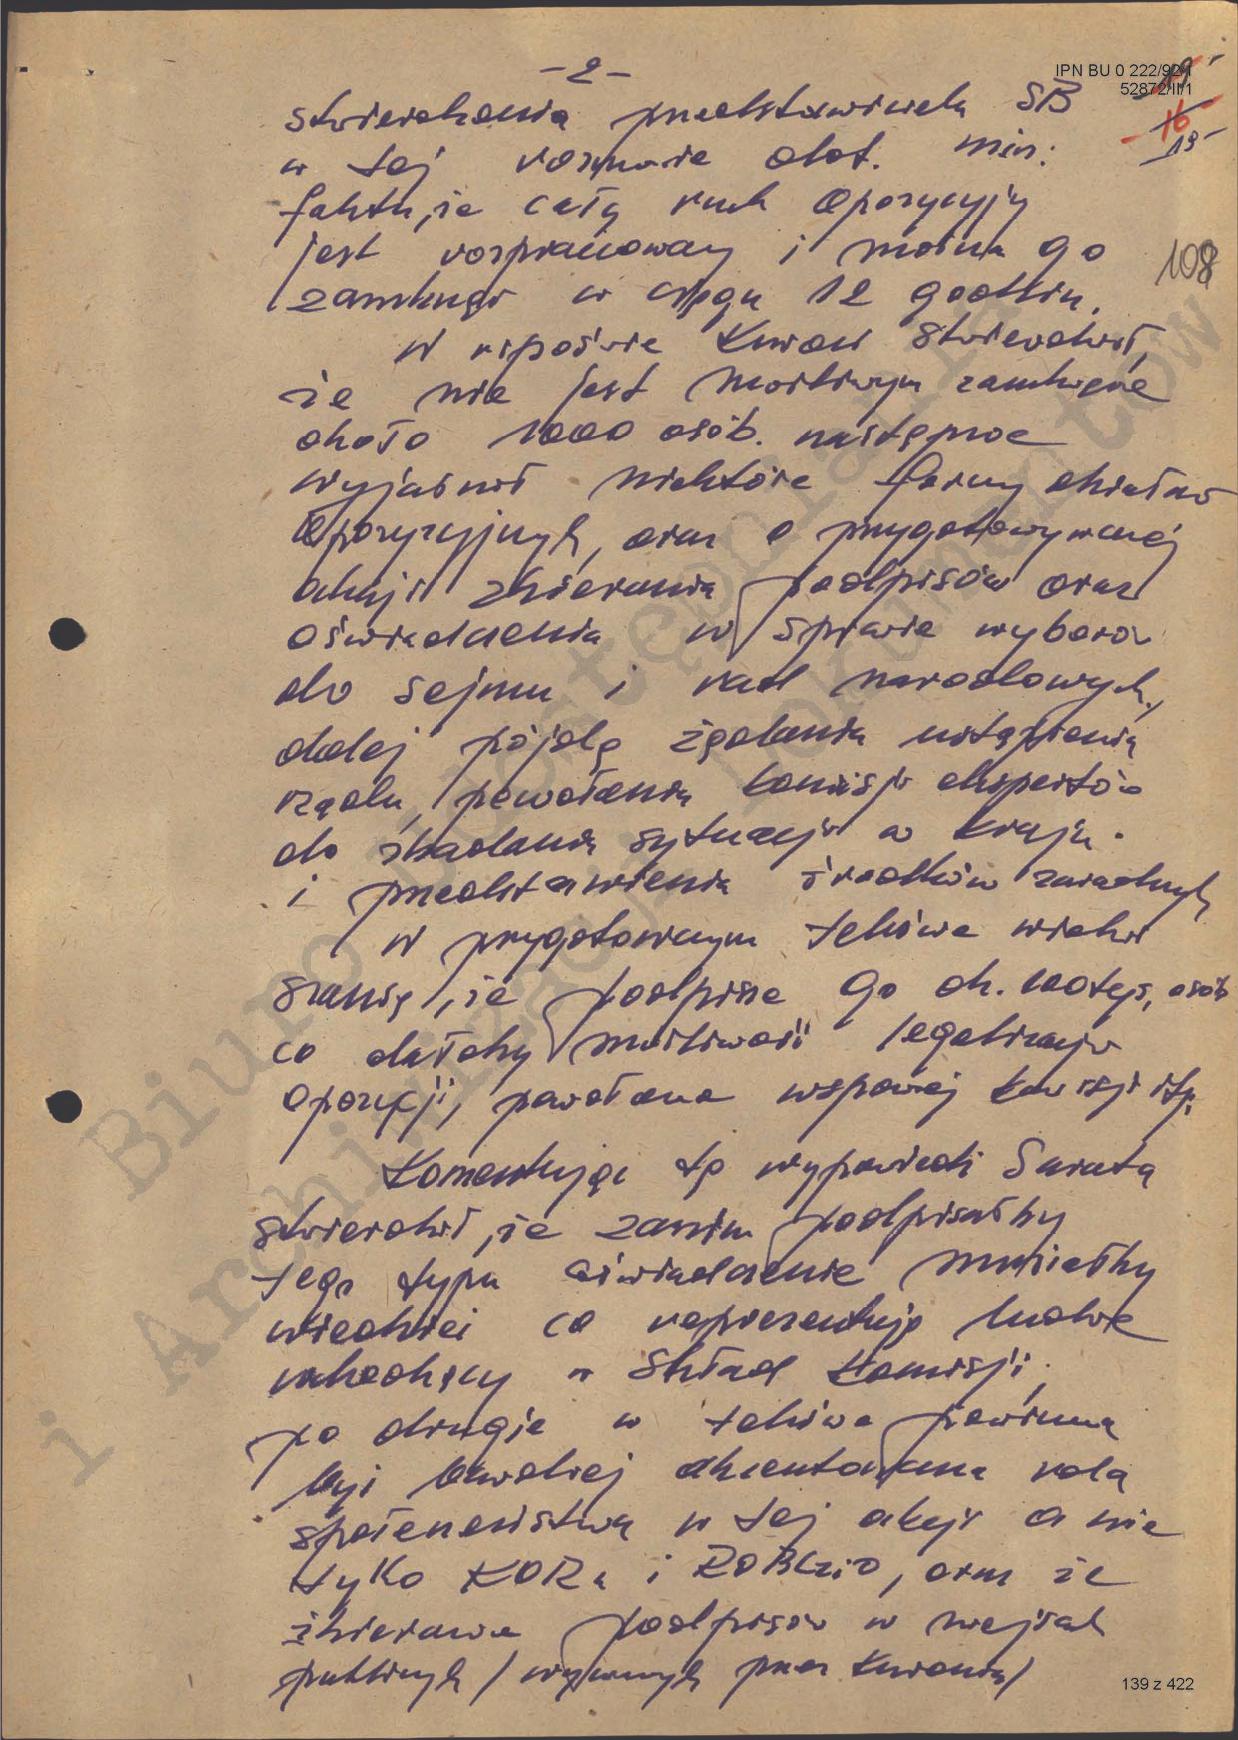 IPN BU 0 222/92/1
52872/II/1
- 2 -
19
16
19
108
stwierdzenia przedstawiciela SB
w tej rozmowie dot. min.
faktu, że cały ruch opozycyjny
jest rozpracowany i można go
zamknąć w ciągu 12 godzin.
W ripoście stwierdził,
że nie jest możliwym zamknięcie
około 1000 osób. następnie
wyjaśnił niektóre formy działań
opozycyjnych, oraz o przygotowywanej
akcji zbierania podpisów oraz
oświadczenia w sprawie wyborów
do sejmu i rad narodowych,
dalej pójdą żądania ustąpienia
rządu, powołania komisji ekspertów
do zbadania sytuacji w kraju
i przedstawienia środków zaradczych
W przygotowanym tekście
szansę, że podpisze go ok. 100 tys. osób
co dałoby możliwość legalizacji
opozycji, powołania komisji itp.
Komentując tę wypowiedź
stwierdził, że zanim podpisałby
tego typu oświadczenie musiałby
wiedzieć co reprezentują ludzie
wchodzący w skład Komisji,
po drugie w tekście powinna
być bardziej akcentowana rola
społeczeństwa w tej akcji a nie
tylko KORu i ROBCziO, oraz że
zbieranie podpisów w miejscach
publicznych / przez /
Biuro Udostępniania
i Archiwizacji Dokumentów
139 z 422